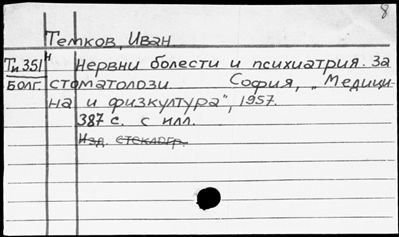 8
Темков, Иван
Ти 351 н Нервни болести и психиатрия. За
Болг. стоматолози София, „Медици-
на и физкултура", 1957.
387 с. с илл.
Изд. стеклогр.